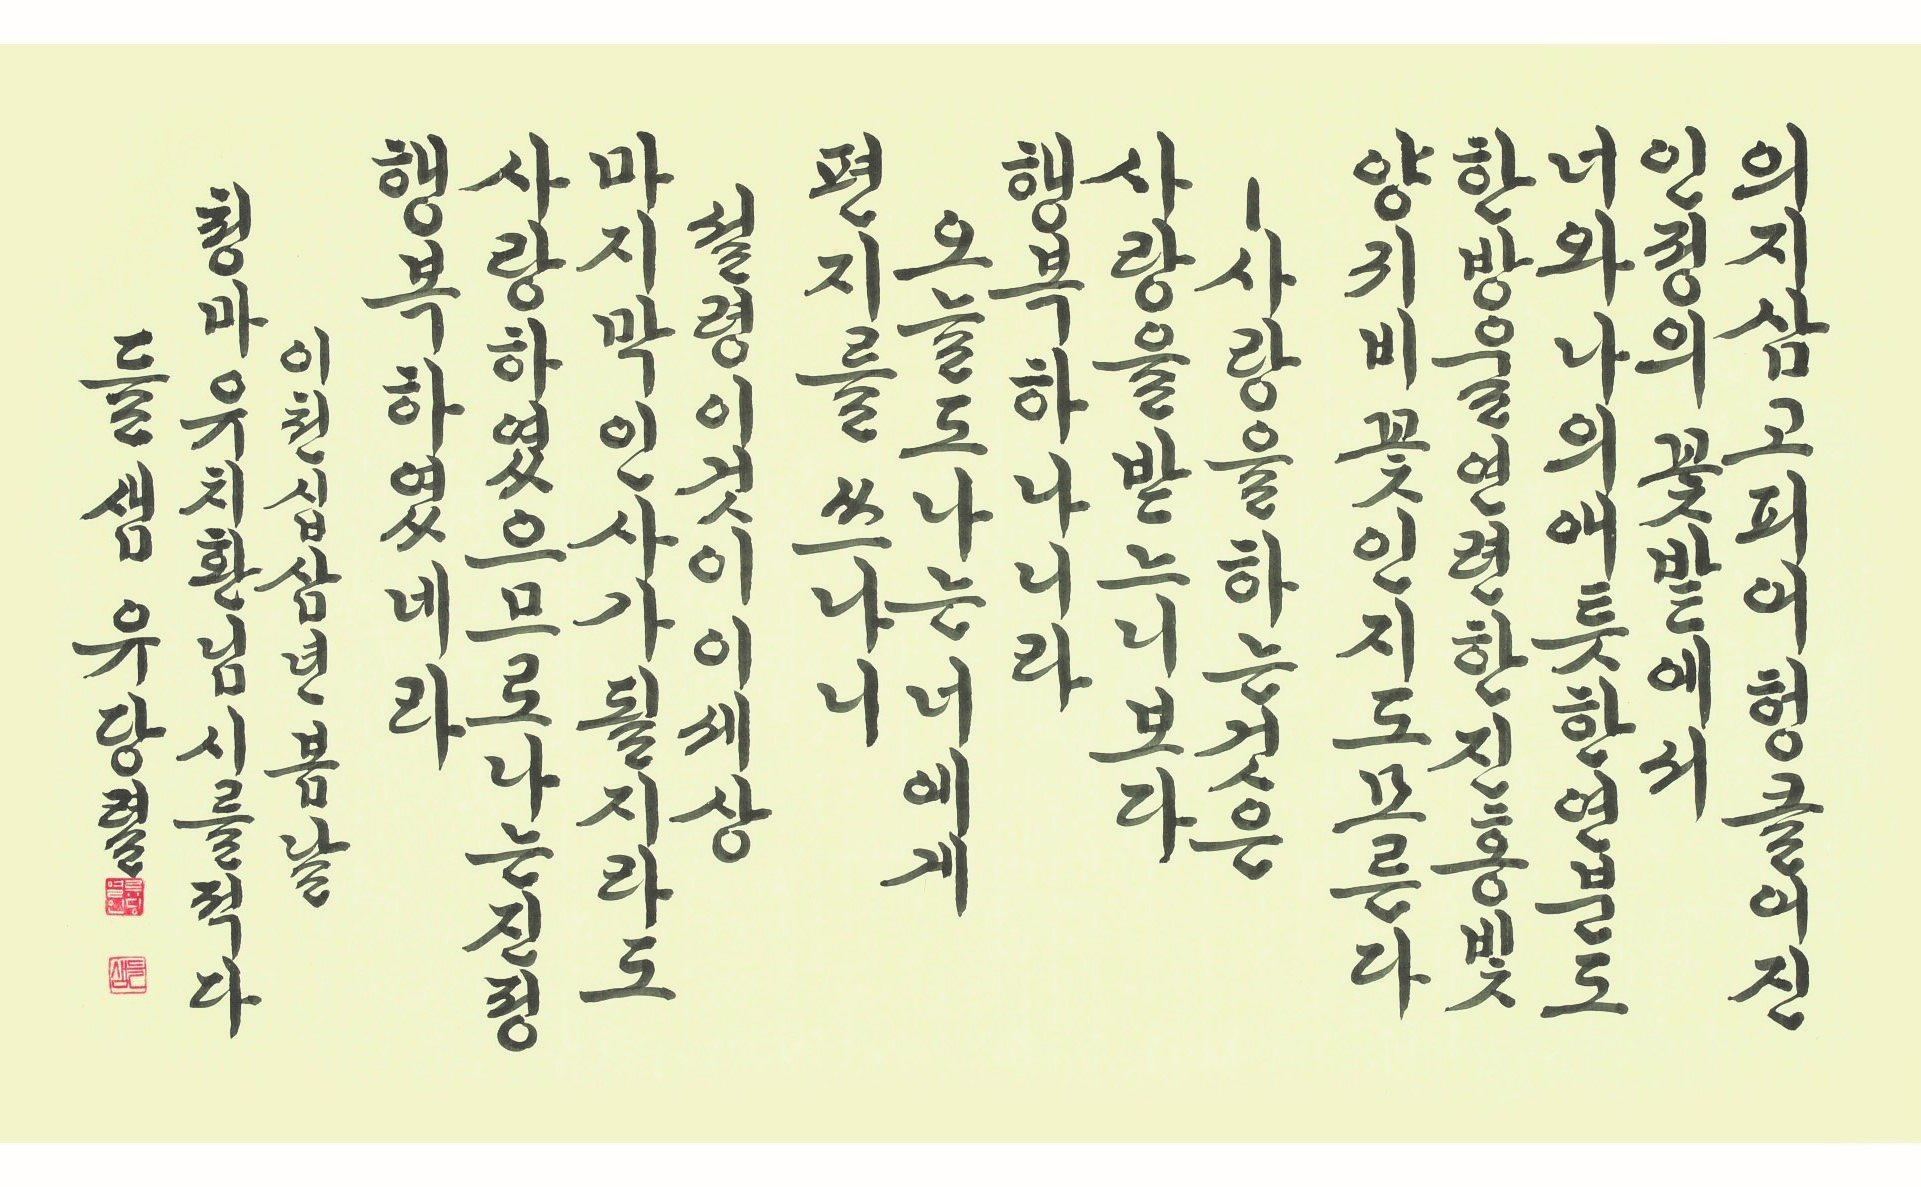 의지삼고피어헝클어진
인정의 꽃밭에서
너와 나의 애틋한 연분도
한방울 연련한 진홍빛
양귀비 꽃인지도 모른다
ㅡ사랑을 하는것은
사랑을 받느니보다
행복하나니라
오늘도 나는 너에게
편지를 쓰나니
설령 이것이 이 세상
마지막 인사가 될지라도
사랑하였으므로 나는 진정
행복하였네라
이천십삼년 봄날
청마 유치환님 시를 적다
들샘 유당렬
들샘